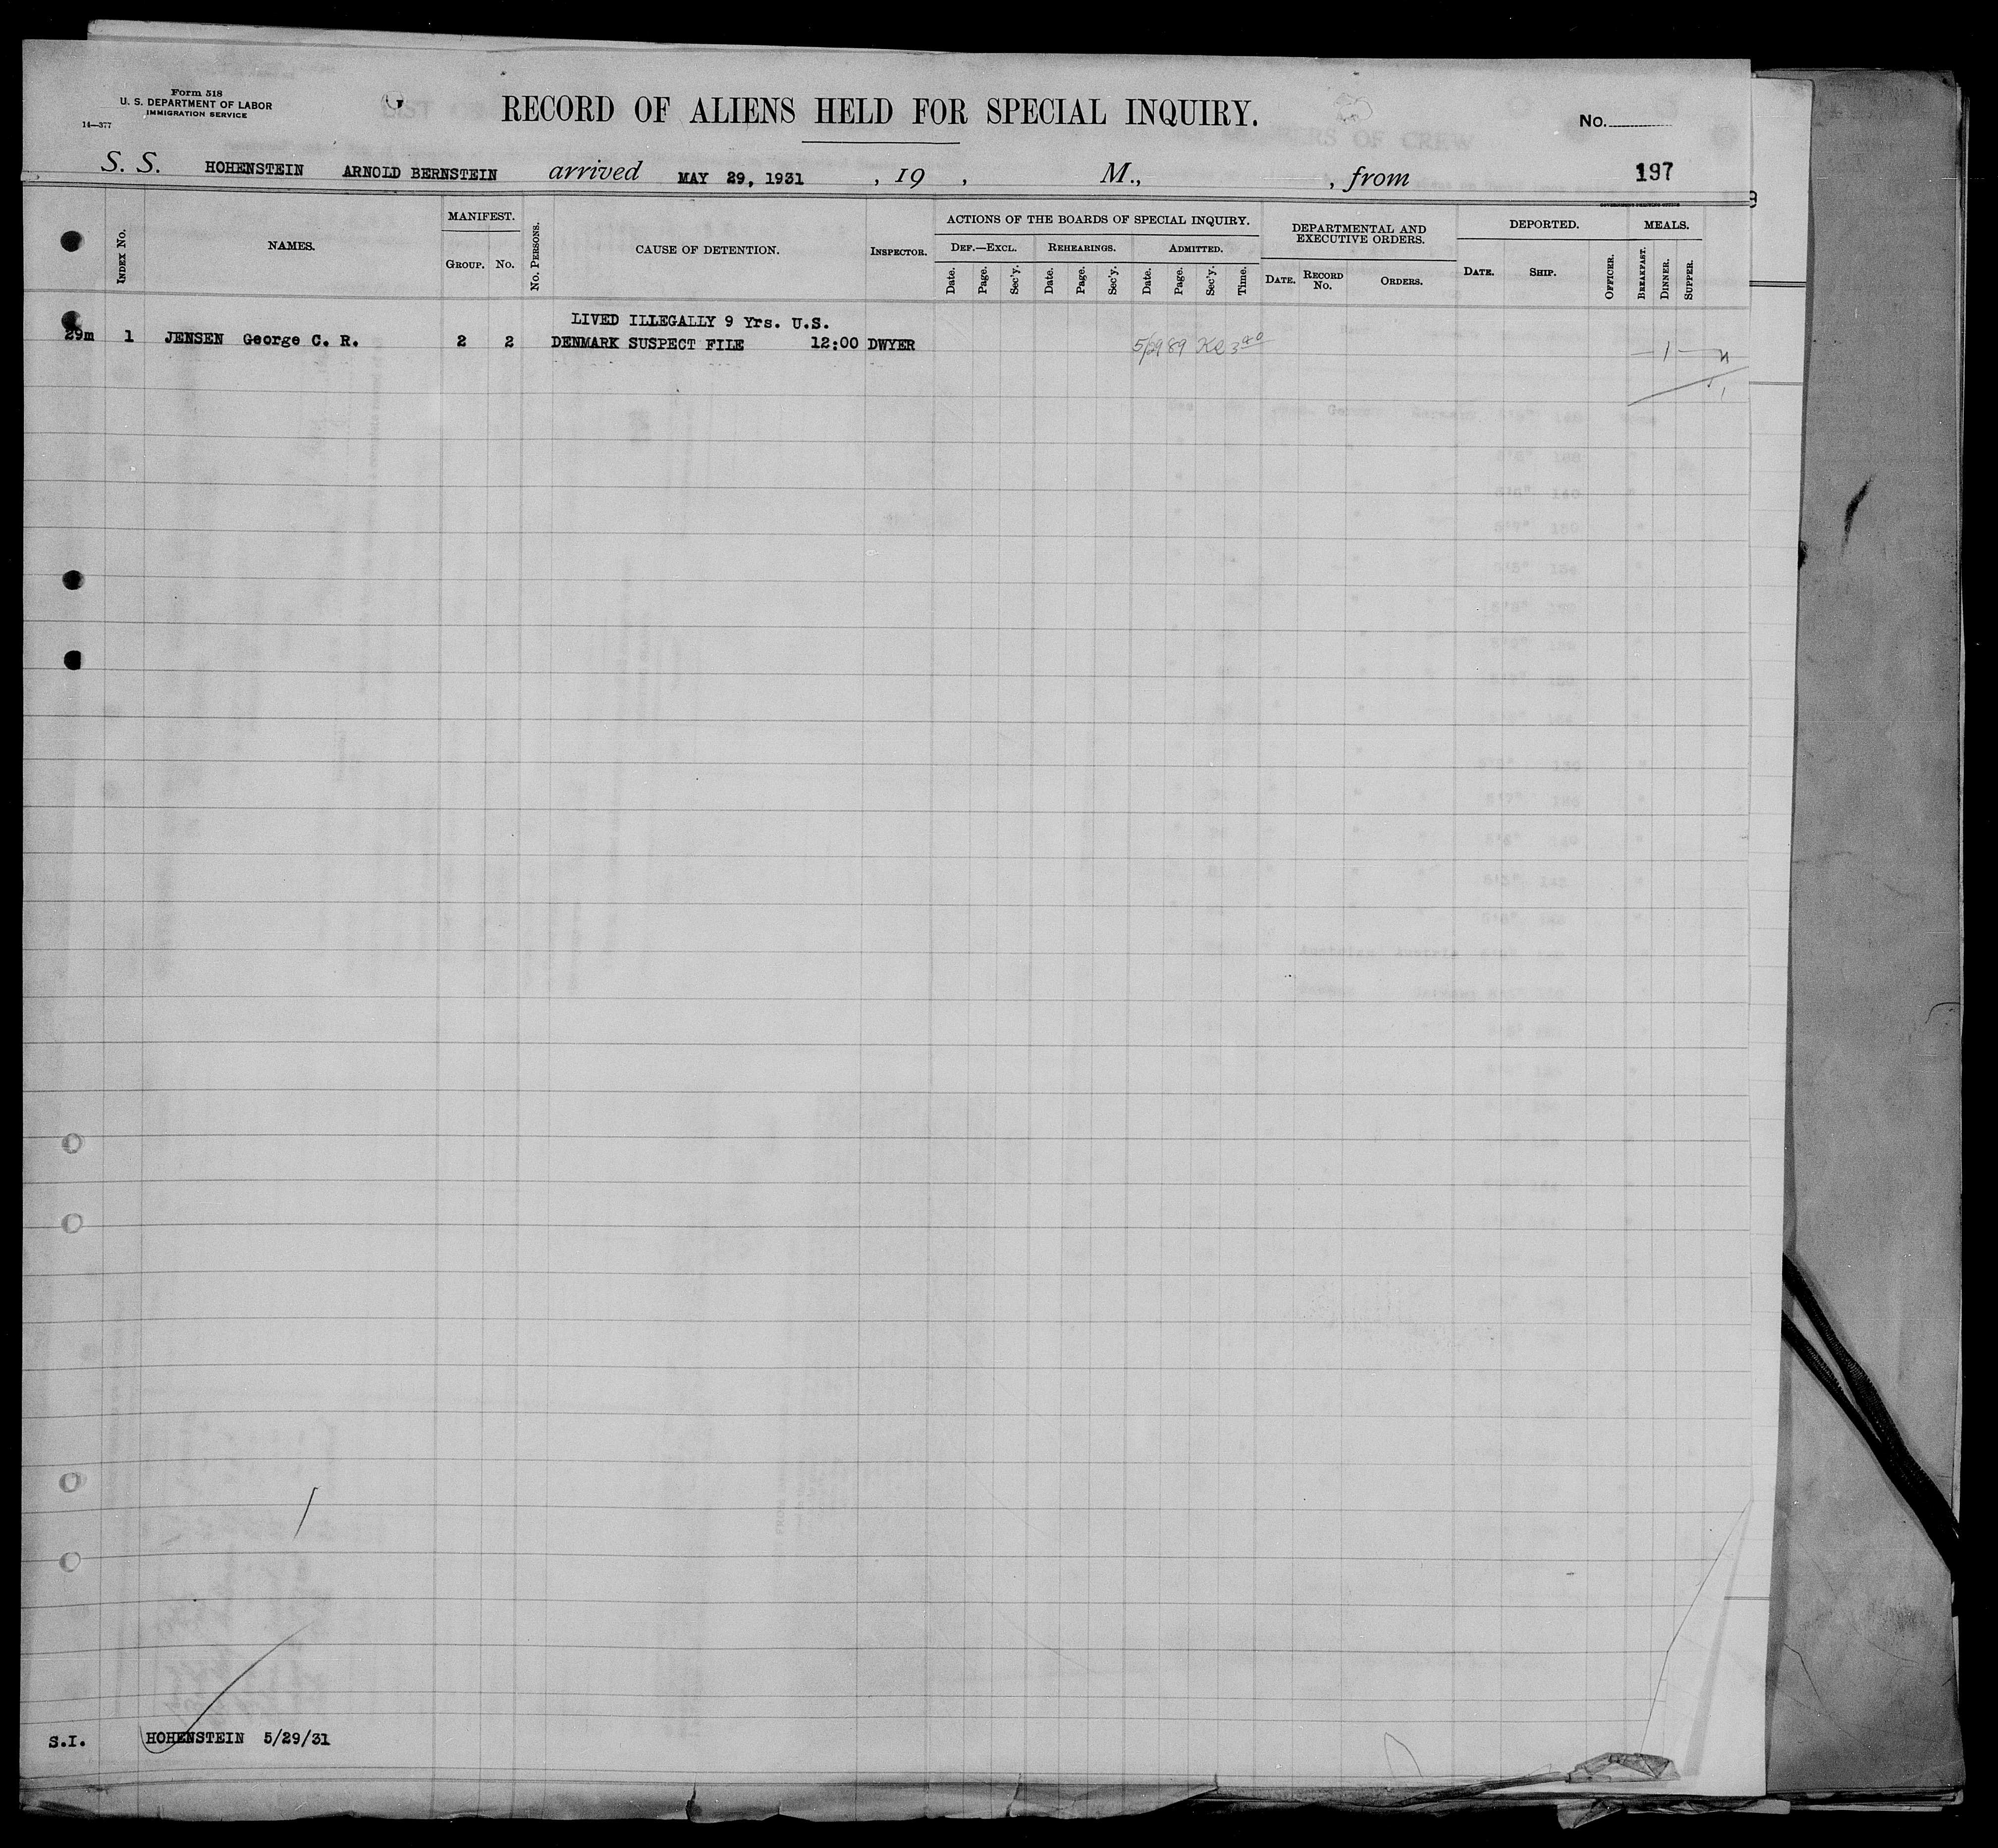 Form 518
U. S. DEPARTMENT OF LABOR
IMMIGRATION SERVICE
14—377
RECORD OF ALIENS HELD FOR SPECIAL INQUIRY.
No.
S. S. HOHENSTEIN ARNOLD BERNSTEIN arrived MAY 29, 1931 , 19 , M., , from 197
GOVERNMENT PRINTING OFFICE
INDEX No.
NAMES.
MANIFEST.
GROUP. No.
No. PERSONS.
CAUSE OF DETENTION.
INSPECTOR.
ACTIONS OF THE BOARDS OF SPECIAL INQUIRY.
DEF.—EXCL. REHEARINGS. ADMITTED.
Date. Page. Sec'y. Date. Page. Sec'y. Date. Page. Sec'y. Time.
DEPARTMENTAL AND
EXECUTIVE ORDERS.
DATE. RECORD No. ORDERS.
DEPORTED.
DATE. SHIP. OFFICER.
MEALS.
BREAKFAST. DINNER. SUPPER.
LIVED ILLEGALLY 9 Yrs. U.S.
29m 1 JENSEN George C. R. 2 2 DENMARK SUSPECT FILE 12:00 DWYER 5/29 89 1
S.I. HOHENSTEIN 5/29/31